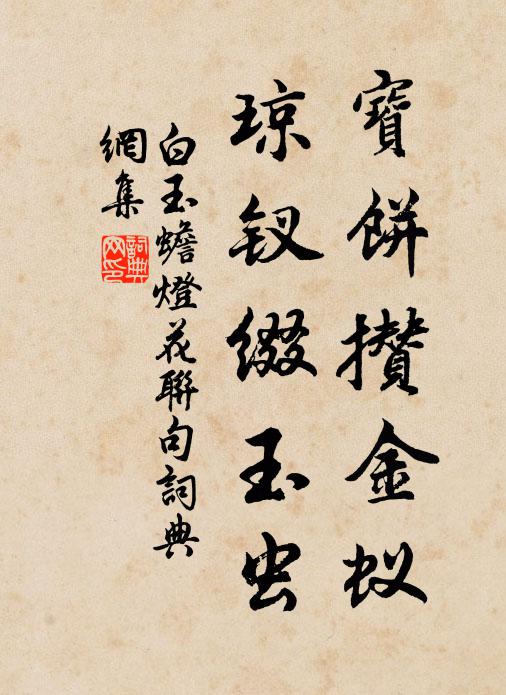 寶餅攅金蚁
琼钗缀玉虫
白玉蟾燈花聯句詞典
網集
詞典
网印